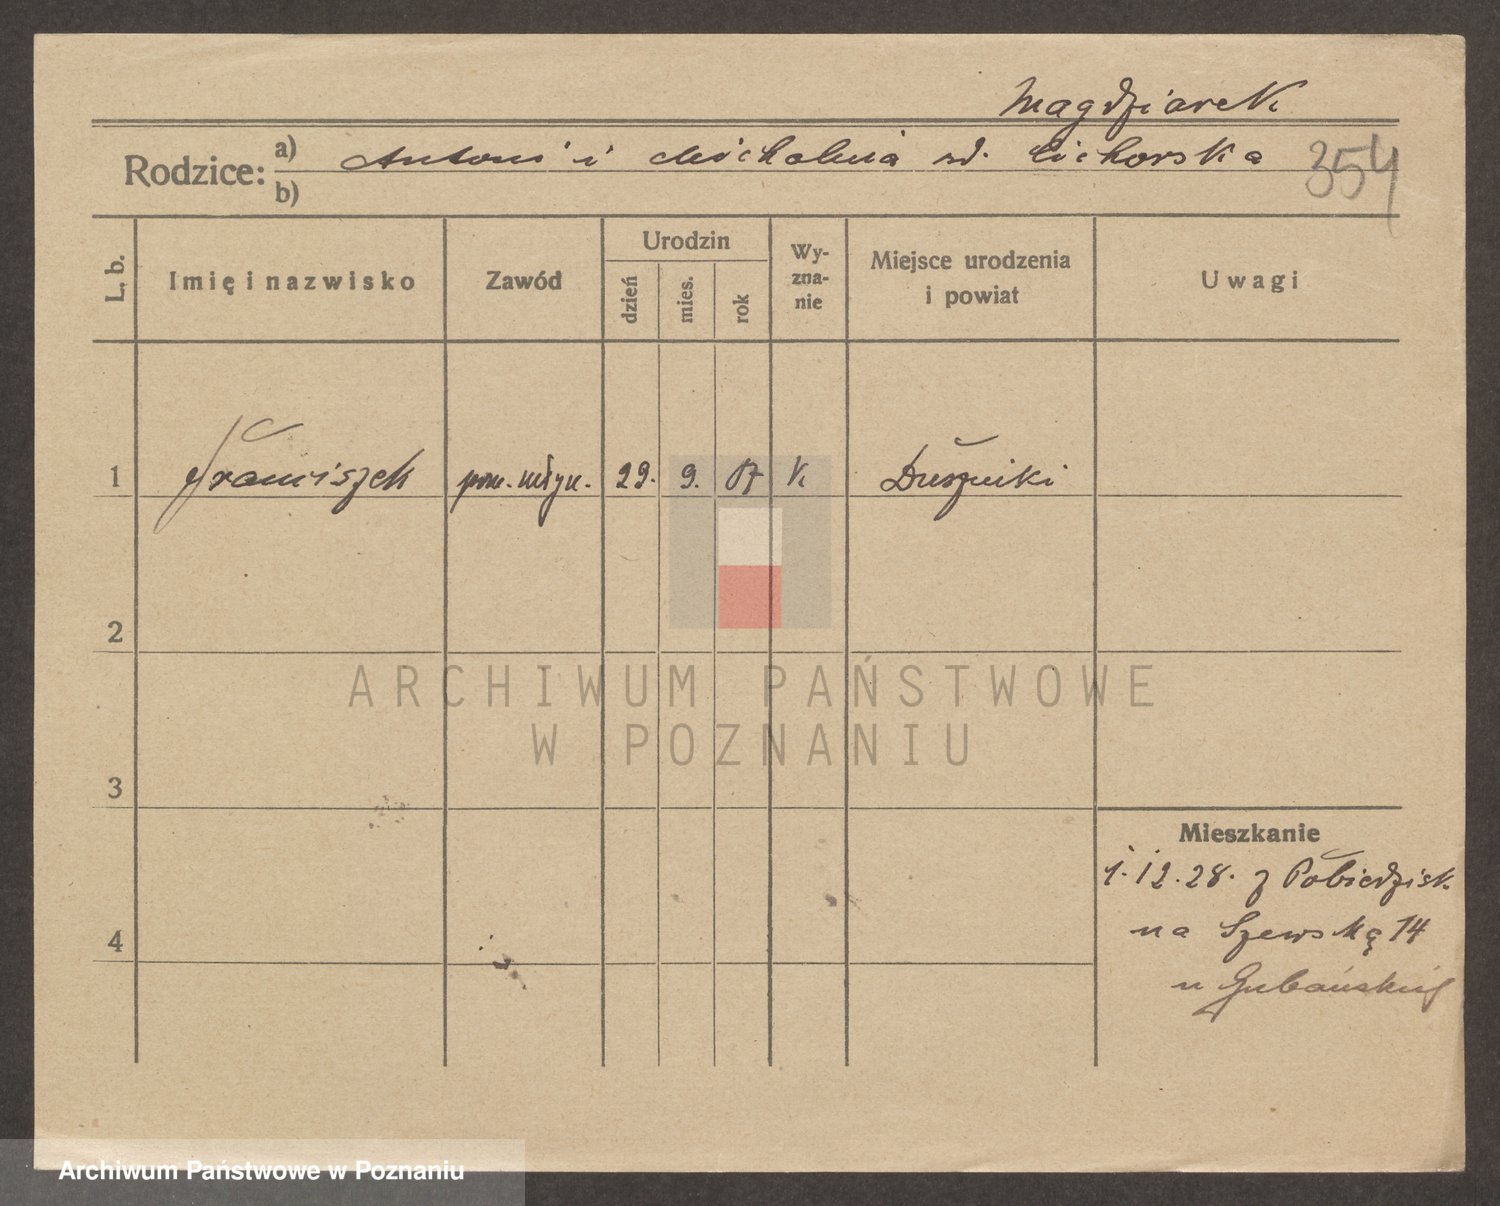 Magdziarek
Rodzice: a) Antoni i Michalina zd. Cichorska
b)
354
L. b. Imię i nazwisko Zawód Urodzin dzień mies. rok Wyznanie Miejsce urodzenia i powiat Uwagi
1 Franciszek pom. młyn. 29. 9. 07 k. Duszniki
2
ARCHIWUM PAŃSTWOWE
W POZNANIU
3
Mieszkanie
1.12.28. z Pobiedzisk
na Szewską 14
4
u Gubańskiej
Archiwum Państwowe w Poznaniu